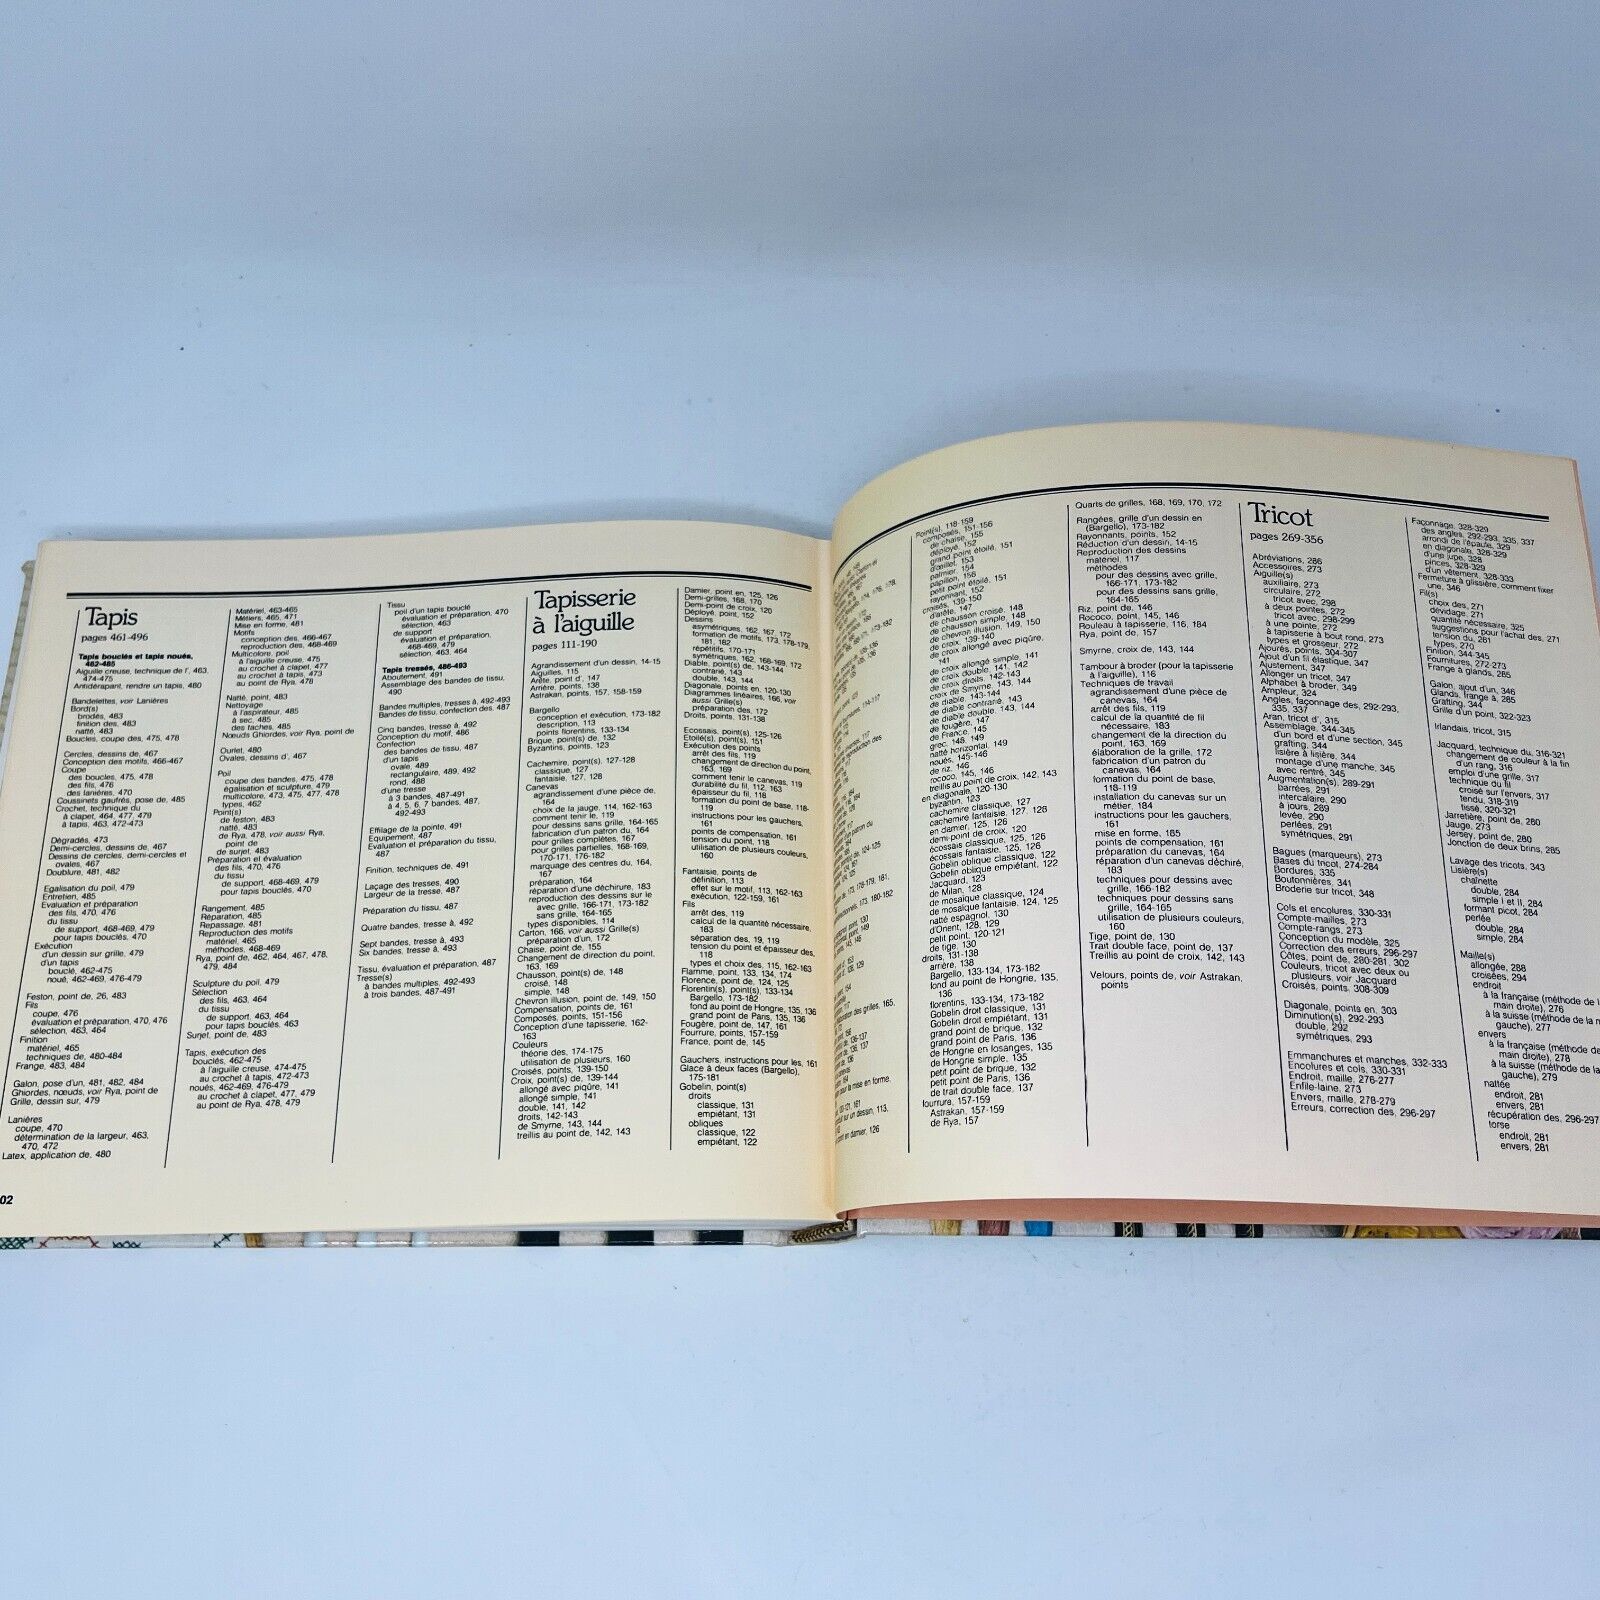 Tapis
pages 461-496
Tapis bouclés et tapis noués,
462-485
Aiguille creuse, technique de l', 463,
474-475
Antidérapant, rendre un tapis, 480
Bandelettes, voir Lanières
Bord(s)
brodés, 483
finition des, 483
natté, 483
Boucles, coupe des, 475, 478
Cercles, dessins de, 467
Conception des motifs, 466-467
Coupe
des boucles, 475, 478
des fils, 476
des lanières, 470
Coussinets gaufrés, pose de, 485
Crochet, technique du
à clapet, 464, 477, 479
à tapis, 463, 472-473
Dégradés, 473
Demi-cercles, dessins de, 467
Dessins de cercles, demi-cercles et
ovales, 467
Doublure, 481, 482
Egalisation du poil, 479
Entretien, 485
Evaluation et préparation
des fils, 470, 476
du tissu
de support, 468-469, 479
pour tapis bouclés, 470
Exécution
d'un dessin sur grille, 479
d'un tapis
bouclé, 462-475
noué, 462-469, 476-479
Feston, point de, 26, 483
Fils
coupe, 476
évaluation et préparation, 470, 476
sélection, 463, 464
Finition
matériel, 465
techniques de, 480-484
Frange, 483, 484
Galon, pose d'un, 481, 482, 484
Ghiordes, nœuds, voir Rya, point de
Grille, dessin sur, 479
Lanières
coupe, 470
détermination de la largeur, 463,
470, 472
Latex, application de, 480
Matériel, 463-465
Métiers, 465, 471
Mise en forme, 481
Motifs
conception des, 466-467
reproduction des, 468-469
Multicolore, poil
à l'aiguille creuse, 475
au crochet à clapet, 477
au crochet à tapis, 473
au point de Rya, 478
Natté, point, 483
Nettoyage
à l'aspirateur, 485
à sec, 485
des taches, 485
Nœuds Ghiordes, voir Rya, point de
Ourlet, 480
Ovales, dessins d', 467
Poil
coupe des bandes, 475, 478
égalisation et sculpture, 479
multicolore, 473, 475, 477, 478
types, 462
Point(s)
de feston, 483
natté, 483
de Rya, 478, voir aussi Rya,
point de
de surjet, 483
Préparation et évaluation
des fils, 470, 476
du tissu
de support, 468-469, 479
pour tapis bouclés, 470
Rangement, 485
Réparation, 485
Repassage, 481
Reproduction des motifs
matériel, 465
méthodes, 468-469
Rya, point de, 462, 464, 467, 478,
479, 484
Sculpture du poil, 479
Sélection
des fils, 463, 464
du tissu
de support, 463, 464
pour tapis bouclés, 463
Surjet, point de, 483
Tapis, exécution des
bouclés, 462-475
à l'aiguille creuse, 474-475
au crochet à tapis, 472-473
noués, 462-469, 476-479
au crochet à clapet, 477, 479
au point de Rya, 478, 479
Tissu
poil d'un tapis bouclé
évaluation et préparation, 470
sélection, 463
de support
évaluation et préparation,
468-469, 479
sélection, 463, 464
Tapis tressés, 486-493
Aboutement, 491
Assemblage des bandes de tissu,
490
Bandes multiples, tresses à, 492-493
Bandes de tissu, confection des, 487
Cinq bandes, tresse à, 492
Conception du motif, 486
Confection
des bandes de tissu, 487
d'un tapis
ovale, 489
rectangulaire, 489, 492
rond, 488
d'une tresse
à 3 bandes, 487-491
à 4, 5, 6, 7 bandes, 487,
492-493
Effilage de la pointe, 491
Equipement, 487
Evaluation et préparation du tissu,
487
Finition, techniques de, 491
Laçage des tresses, 490
Largeur de la tresse, 487
Préparation du tissu, 487
Quatre bandes, tresse à, 492
Sept bandes, tresse à, 493
Six bandes, tresse à, 493
Tissu, évaluation et préparation, 487
Tresse(s)
à bandes multiples, 492-493
à trois bandes, 487-491
Tapisserie
à l'aiguille
pages 111-190
Agrandissement d'un dessin, 14-15
Aiguilles, 115
Arête, point d', 147
Arrière, points, 138
Astrakan, points, 157, 158-159
Bargello
conception et exécution, 173-182
description, 113
points florentins, 133-134
Brique, point(s) de, 132
Byzantins, points, 123
Cachemire, point(s), 127-128
classique, 127
fantaisie, 127, 128
Canevas
agrandissement d'une pièce de,
164
choix de la jauge, 114, 162-163
comment tenir le, 119
pour dessins sans grille, 164-165
fabrication d'un patron du, 164
pour grilles complètes, 167
pour grilles partielles, 168-169,
170-171, 176-182
marquage des centres du, 164,
167
préparation, 164
réparation d'une déchirure, 183
reproduction des dessins sur le
avec grille, 166-171, 173-182
sans grille, 164-165
types disponibles, 114
Carton, 166, voir aussi Grille(s)
préparation d'un, 172
Chaise, point de, 155
Changement de direction du point,
163, 169
Chausson, point(s) de, 148
croisé, 148
simple, 148
Chevron illusion, point de, 149, 150
Compensation, points de, 161
Composés, points, 151-156
Conception d'une tapisserie, 162-
163
Couleurs
théorie des, 174-175
utilisation de plusieurs, 160
Croisés, points, 139-150
Croix, point(s) de, 139-144
allongé avec piqûre, 141
allongé simple, 141
double, 141, 142
droits, 142-143
de Smyrne, 143, 144
treillis au point de, 142, 143
Damier, point en, 125, 126
Demi-grilles, 168, 170
Demi-point de croix, 120
Déployé, point, 152
Dessins
asymétriques, 162, 167, 172
formation de motifs, 173, 178-179,
181, 182
répétitifs, 170-171
symétriques, 162, 168-169, 172
Diable, point(s) de, 143-144
contrarié, 143
double, 143, 144
Diagonale, points en, 120-130
Diagrammes linéaires, 166, voir
aussi Grille(s)
préparation des, 172
Droits, points, 131-138
Ecossais, point(s), 125-126
Etoilé(s), point(s), 151
Exécution des points
arrêt des fils, 119
changement de direction du point,
163, 169
comment tenir le canevas, 119
durabilité du fil, 112, 163
épaisseur du fil, 118
formation du point de base, 118-
119
instructions pour les gauchers,
161
points de compensation, 161
tension du point, 118
utilisation de plusieurs couleurs,
160
Fantaisie, points de
définition, 113
effet sur le motif, 113, 162-163
exécution, 122-159, 161
Fils
arrêt des, 119
calcul de la quantité nécessaire,
183
séparation des, 19, 119
tension du point et épaisseur des,
118
types et choix des, 115, 162-163
Flamme, point, 133, 134, 174
Florence, point de, 124, 125
Florentin(s), point(s), 133-134
Bargello, 173-182
fond au point de Hongrie, 135, 136
grand point de Paris, 135, 136
Fougère, point de, 147, 161
Fourrure, points, 157-159
France, point de, 145
Gauchers, instructions pour les, 161
Glace à deux faces (Bargello),
175-181
Gobelin, point(s)
droits
classique, 131
empiétant, 131
obliques
classique, 122
empiétant, 122
02
Point(s), 118-159
composés, 151-156
de chaise, 155
déployé, 152
grand point étoilé, 151
d'œillet, 153
palmier, 154
papillon, 156
petit point étoilé, 151
rayonnant, 152
croisés, 139-150
d'arête, 147
de chausson croisé, 148
de chausson simple, 148
de chevron illusion, 149, 150
de croix, 139-140
de croix allongé avec piqûre,
141
de croix allongé simple, 141
de croix double, 141, 142
de croix droits, 142-143
croix de Smyrne, 143, 144
de diable, 143, 144
de diable contrarié, 143
de diable double, 143, 144
de fougère, 147
de France, 145
grec, 148, 149
natté horizontal, 149
noués, 145-146
de riz, 146
rococo, 145, 146
treillis au point de croix, 142, 143
en diagonale, 120-130
byzantin, 123
cachemire classique, 127
cachemire fantaisie, 127, 128
en damier, 125, 126
demi-point de croix, 120
écossais classique, 125, 126
écossais fantaisie, 125, 126
Gobelin oblique classique, 122
Gobelin oblique empiétant, 122
Jacquard, 123
de Milan, 128
de mosaïque classique, 124
de mosaïque fantaisie, 124, 125
natté espagnol, 130
d'Orient, 128, 129
petit point, 120-121
de tige, 130
droits, 131-138
arrière, 138
Bargello, 133-134, 173-182
fond au point de Hongrie, 135,
136
florentins, 133-134, 173-182
Gobelin droit classique, 131
Gobelin droit empiétant, 131
grand point de brique, 132
grand point de Paris, 136
de Hongrie en losanges, 135
de Hongrie simple, 135
petit point de brique, 132
petit point de Paris, 136
de trait double face, 137
fourrure, 157-159
Astrakan, 157-159
de Rya, 157
Quarts de grilles, 168, 169, 170, 172
Rangées, grille d'un dessin en
(Bargello), 173-182
Rayonnants, points, 152
Réduction d'un dessin, 14-15
Reproduction des dessins
matériel, 117
méthodes
pour des dessins avec grille,
166-171, 173-182
pour des dessins sans grille,
164-165
Riz, point de, 146
Rococo, point, 145, 146
Rouleau à tapisserie, 116, 184
Rya, point de, 157
Smyrne, croix de, 143, 144
Tambour à broder (pour la tapisserie
à l'aiguille), 116
Techniques de travail
agrandissement d'une pièce de
canevas, 164
arrêt des fils, 119
calcul de la quantité de fil
nécessaire, 183
changement de la direction du
point, 163, 169
élaboration de la grille, 172
fabrication d'un patron du
canevas, 164
formation du point de base,
118-119
installation du canevas sur un
métier, 184
instructions pour les gauchers,
161
mise en forme, 185
points de compensation, 161
préparation du canevas, 164
réparation d'un canevas déchiré,
183
techniques pour dessins avec
grille, 166-182
techniques pour dessins sans
grille, 164-165
utilisation de plusieurs couleurs,
160
Tige, point de, 130
Trait double face, point de, 137
Treillis au point de croix, 142, 143
Velours, points de, voir Astrakan,
points
Tricot
pages 269-356
Abréviations, 286
Accessoires, 273
Aiguille(s)
auxiliaire, 273
circulaire, 272
tricot avec, 298
à deux pointes, 272
tricot avec, 298-299
à une pointe, 272
à tapisserie à bout rond, 273
types et grosseur, 272
Ajourés, points, 304-307
Ajout d'un fil élastique, 347
Ajustement, 347
Allonger un tricot, 347
Alphabet à broder, 349
Ampleur, 324
Angles, façonnage des, 292-293,
335, 337
Aran, tricot d', 315
Assemblage, 344-345
d'un bord et d'une section, 345
grafting, 344
lisière à lisière, 344
montage d'une manche, 345
avec rentré, 345
Augmentation(s), 289-291
barrées, 291
intercalaire, 290
à jours, 289
levée, 290
perlées, 291
symétriques, 291
Bagues (marqueurs), 273
Bases du tricot, 274-284
Bordures, 335
Boutonnières, 341
Broderie sur tricot, 348
Cols et encolures, 330-331
Compte-mailles, 273
Compte-rangs, 273
Conception du modèle, 325
Correction des erreurs, 296-297
Côtes, point de, 280-281, 302
Couleurs, tricot avec deux ou
plusieurs, voir Jacquard
Croisés, points, 308-309
Diagonale, points en, 303
Diminution(s), 292-293
double, 292
symétriques, 293
Emmanchures et manches, 332-333
Encolures et cols, 330-331
Endroit, maille, 276-277
Enfile-laine, 273
Envers, maille, 278-279
Erreurs, correction des, 296-297
Façonnage, 328-329
des angles, 292-293, 335, 337
arrondi de l'épaule, 329
en diagonale, 328-329
d'une jupe, 328
pinces, 328-329
d'un vêtement, 328-333
Fermeture à glissière, comment fixer
une, 346
Fil(s)
choix des, 271
dévidage, 271
quantité nécessaire, 325
suggestions pour l'achat des, 271
tension du, 281
types, 270
Finition, 344-345
Fournitures, 272-273
Frange à glands, 285
Galon, ajout d'un, 346
Glands, frange à, 285
Grafting, 344
Grille d'un point, 322-323
Irlandais, tricot, 315
Jacquard, technique du, 316-321
changement de couleur à la fin
d'un rang, 316
emploi d'une grille, 317
technique du fil
croisé sur l'envers, 317
tendu, 318-319
tissé, 320-321
Jarretière, point de, 280
Jauge, 273
Jersey, point de, 280
Jonction de deux brins, 285
Lavage des tricots, 343
Lisière(s)
chaînette
double, 284
simple I et II, 284
formant picot, 284
perlée
double, 284
simple, 284
Maille(s)
allongée, 288
croisées, 294
endroit
à la française (méthode de la
main droite), 276
à la suisse (méthode de la m
gauche), 277
envers
à la française (méthode de
main droite), 278
à la suisse (méthode de la
gauche), 279
nattée
endroit, 281
envers, 281
récupération des, 296-297
torse
endroit, 281
envers, 281